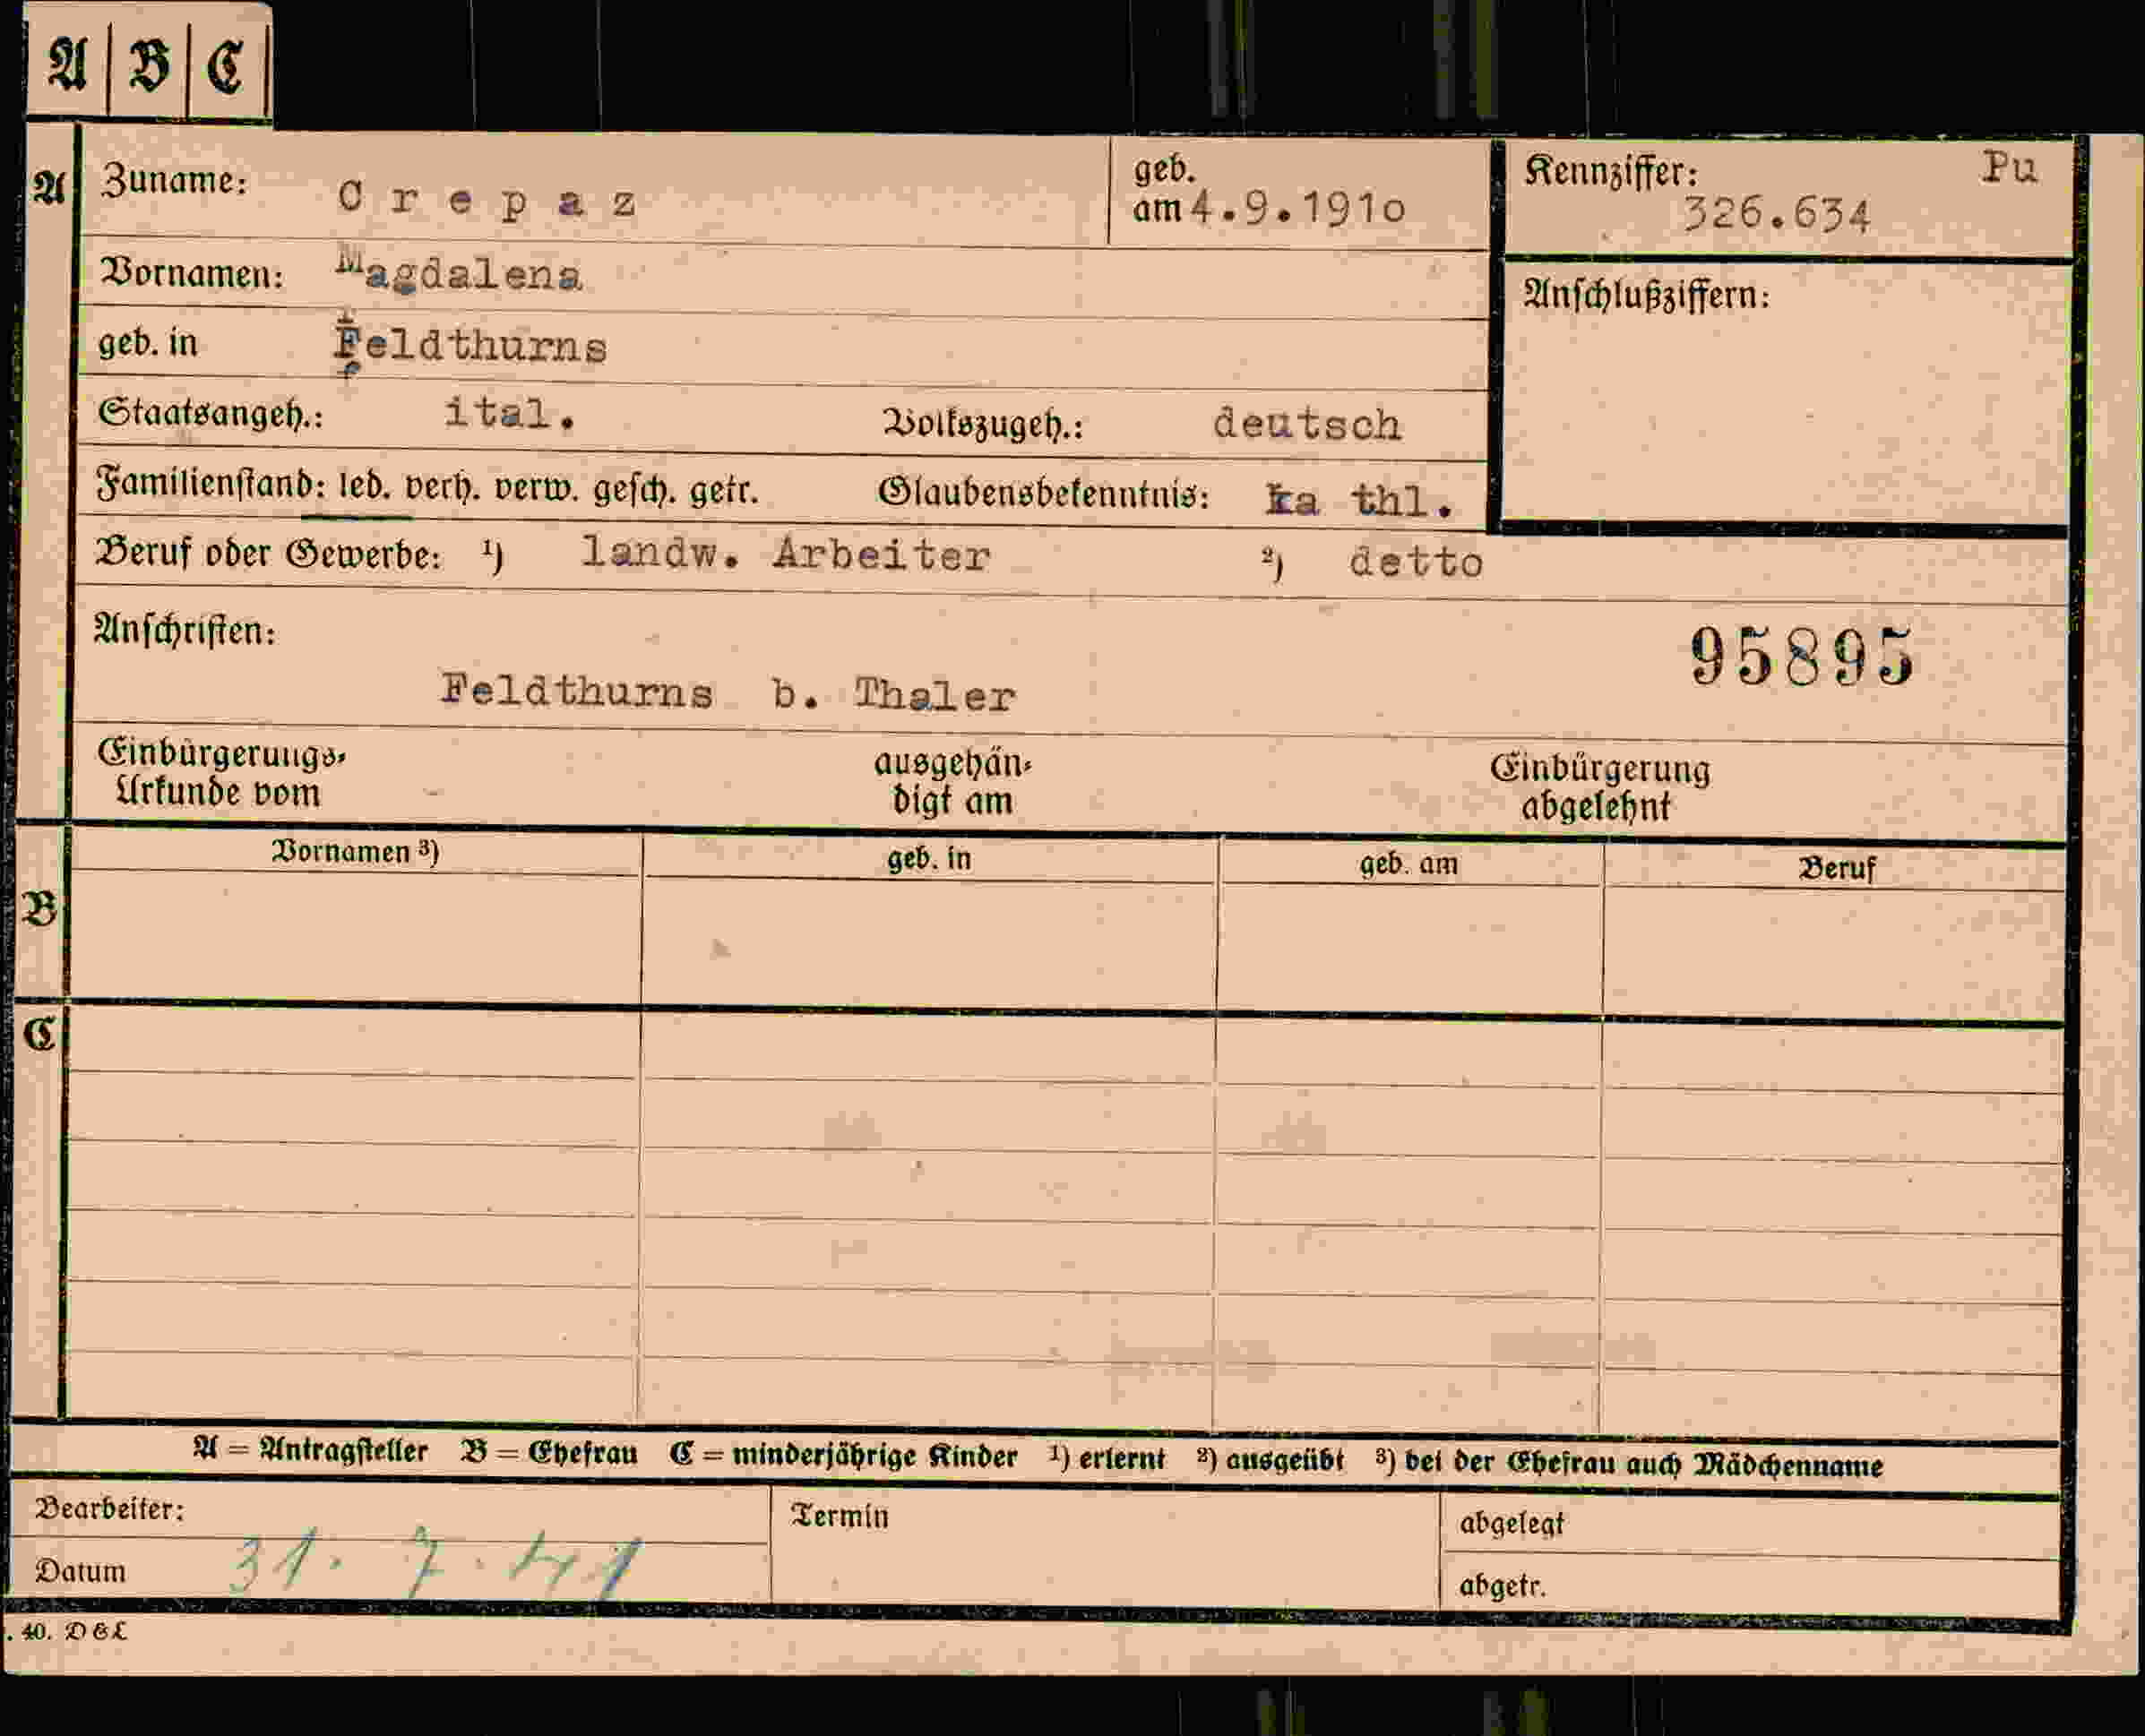 A B C
A Zuname: Crepaz geb. am 4.9.1910 Kennziffer: Pu 326.634
Vornamen: Magdalena Anschlußziffern:
geb. in Feldthurns
Staatsangeh.: ital. Volkszugeh.: deutsch
Familienstand: led. verh. verw. gesch. getr. Glaubensbekenntnis: ka thl.
Beruf oder Gewerbe: 1) landw. Arbeiter 2) detto
Anschriften: 95895
Feldthurns b. Thaler
Einbürgerungs- ausgehän- Einbürgerung
Urkunde vom digt am abgelehnt
Vornamen 3) geb. in geb. am Beruf
B
C
A = Antragsteller B = Ehefrau C = minderjährige Kinder 1) erlernt 2) ausgeübt 3) bei der Ehefrau auch Mädchenname
Bearbeiter: Termin abgelegt
Datum 31. 7. 41 abgetr.
. 40. D & L